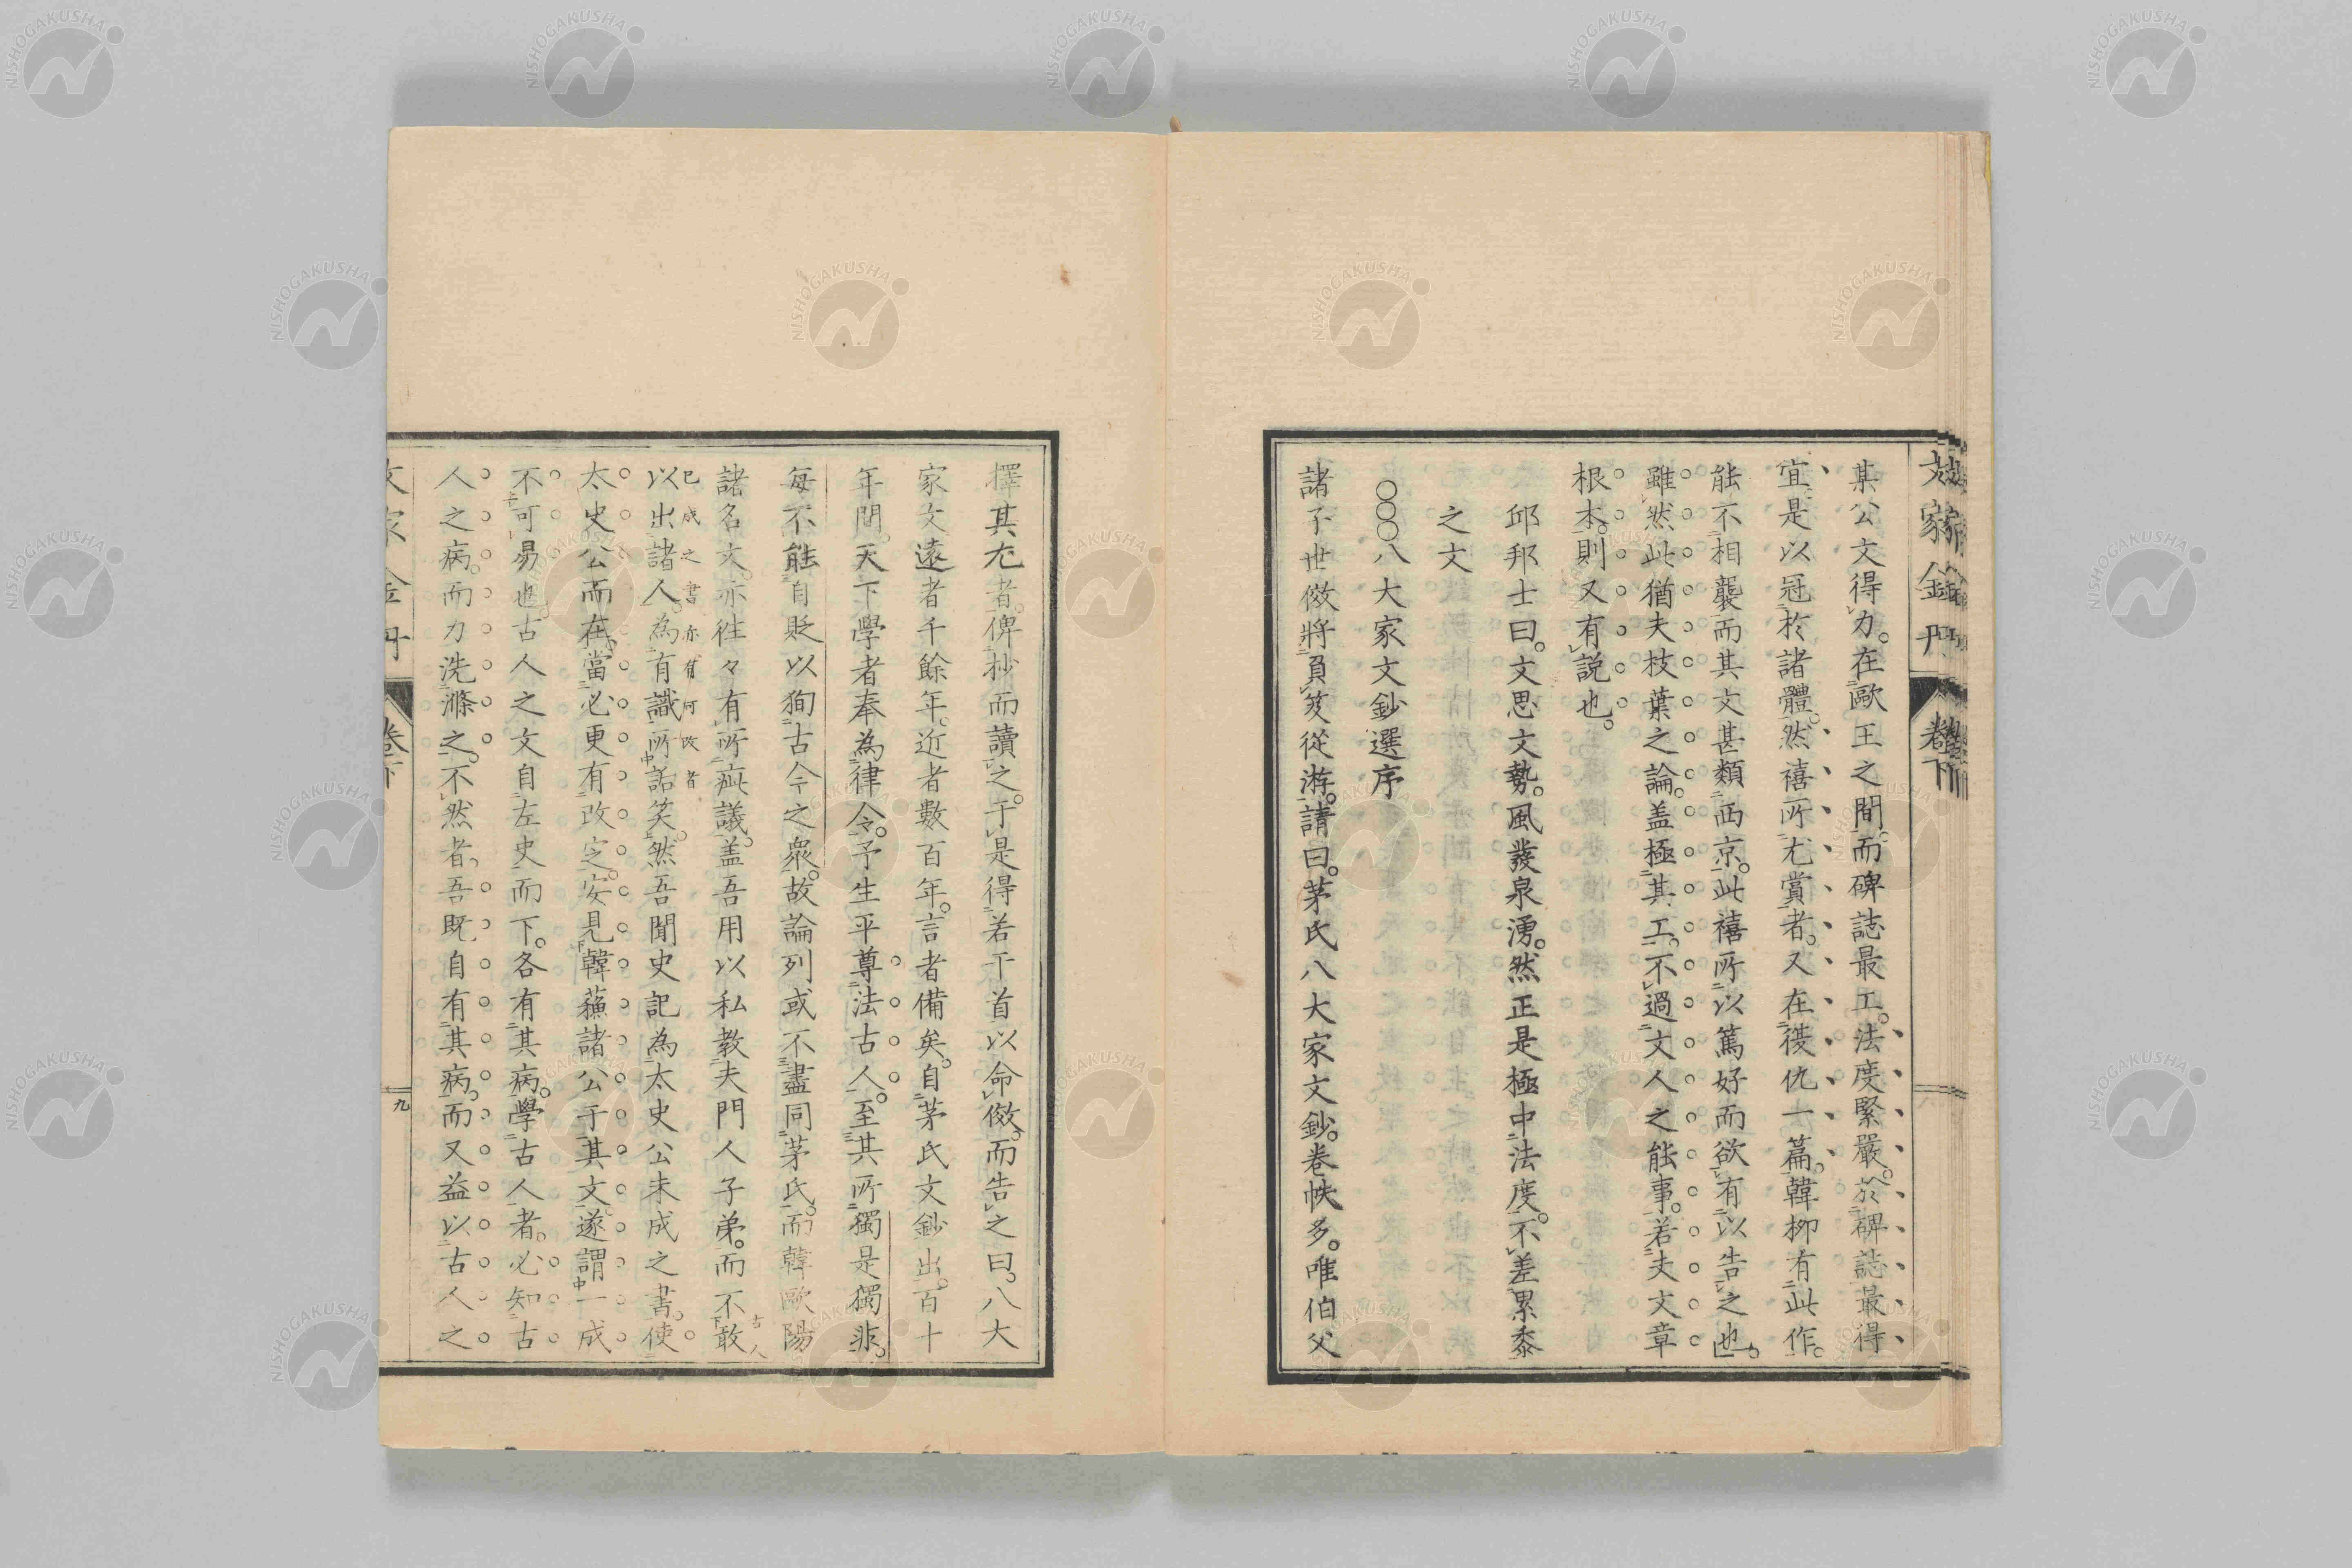 文家金丹 卷下
某公文得力。在歐王之間。而碑誌最工。法度緊嚴。於碑誌最得
宜。是以冠於諸體。然禧所尤賞者。又在復仇一篇。韓柳有此作。
能不相襲。而其文甚類西京。此禧所以篤好而欲有以告之也。
雖然此猶夫枝葉之論。盖極其工。不過文人之能事。若夫文章
根本。則又有説也。
邱邦士曰。文思文勢。風發泉湧。然正是極中法度。不差累黍
之文
○○○八大家文鈔選序
諸子世傚將負笈從游。請曰。茅氏八大家文鈔。卷帙多。唯伯父
擇其尤者。俾抄而讀之。于是得若干首以命傚。而告之曰。八大
家文遠者千餘年。近者數百年。言者備矣。自茅氏文鈔出。百十
年間。天下學者奉為律令。予生平尊法古人。至其所獨是獨非。
每不能自貶以狥古今之衆。故論列或不盡同茅氏。而韓歐陽
諸名文。亦徃々有所疵議。盖吾用以私教夫門人子弟。而不敢
古人
已成之書亦有何改者
以出諸人。為有識所詬笑。然吾聞史記為太史公未成之書。使
太史公而在。當必更有改定。安見韓蘓諸公于其文。遂謂一成
不可易也。古人之文自左史而下。各有其病。學古人者。必知古
人之病。而力洗滌之。不然者。吾既自有其病。而又益以古人之
文家金丹 卷下 九
NISHOGAKUSHA